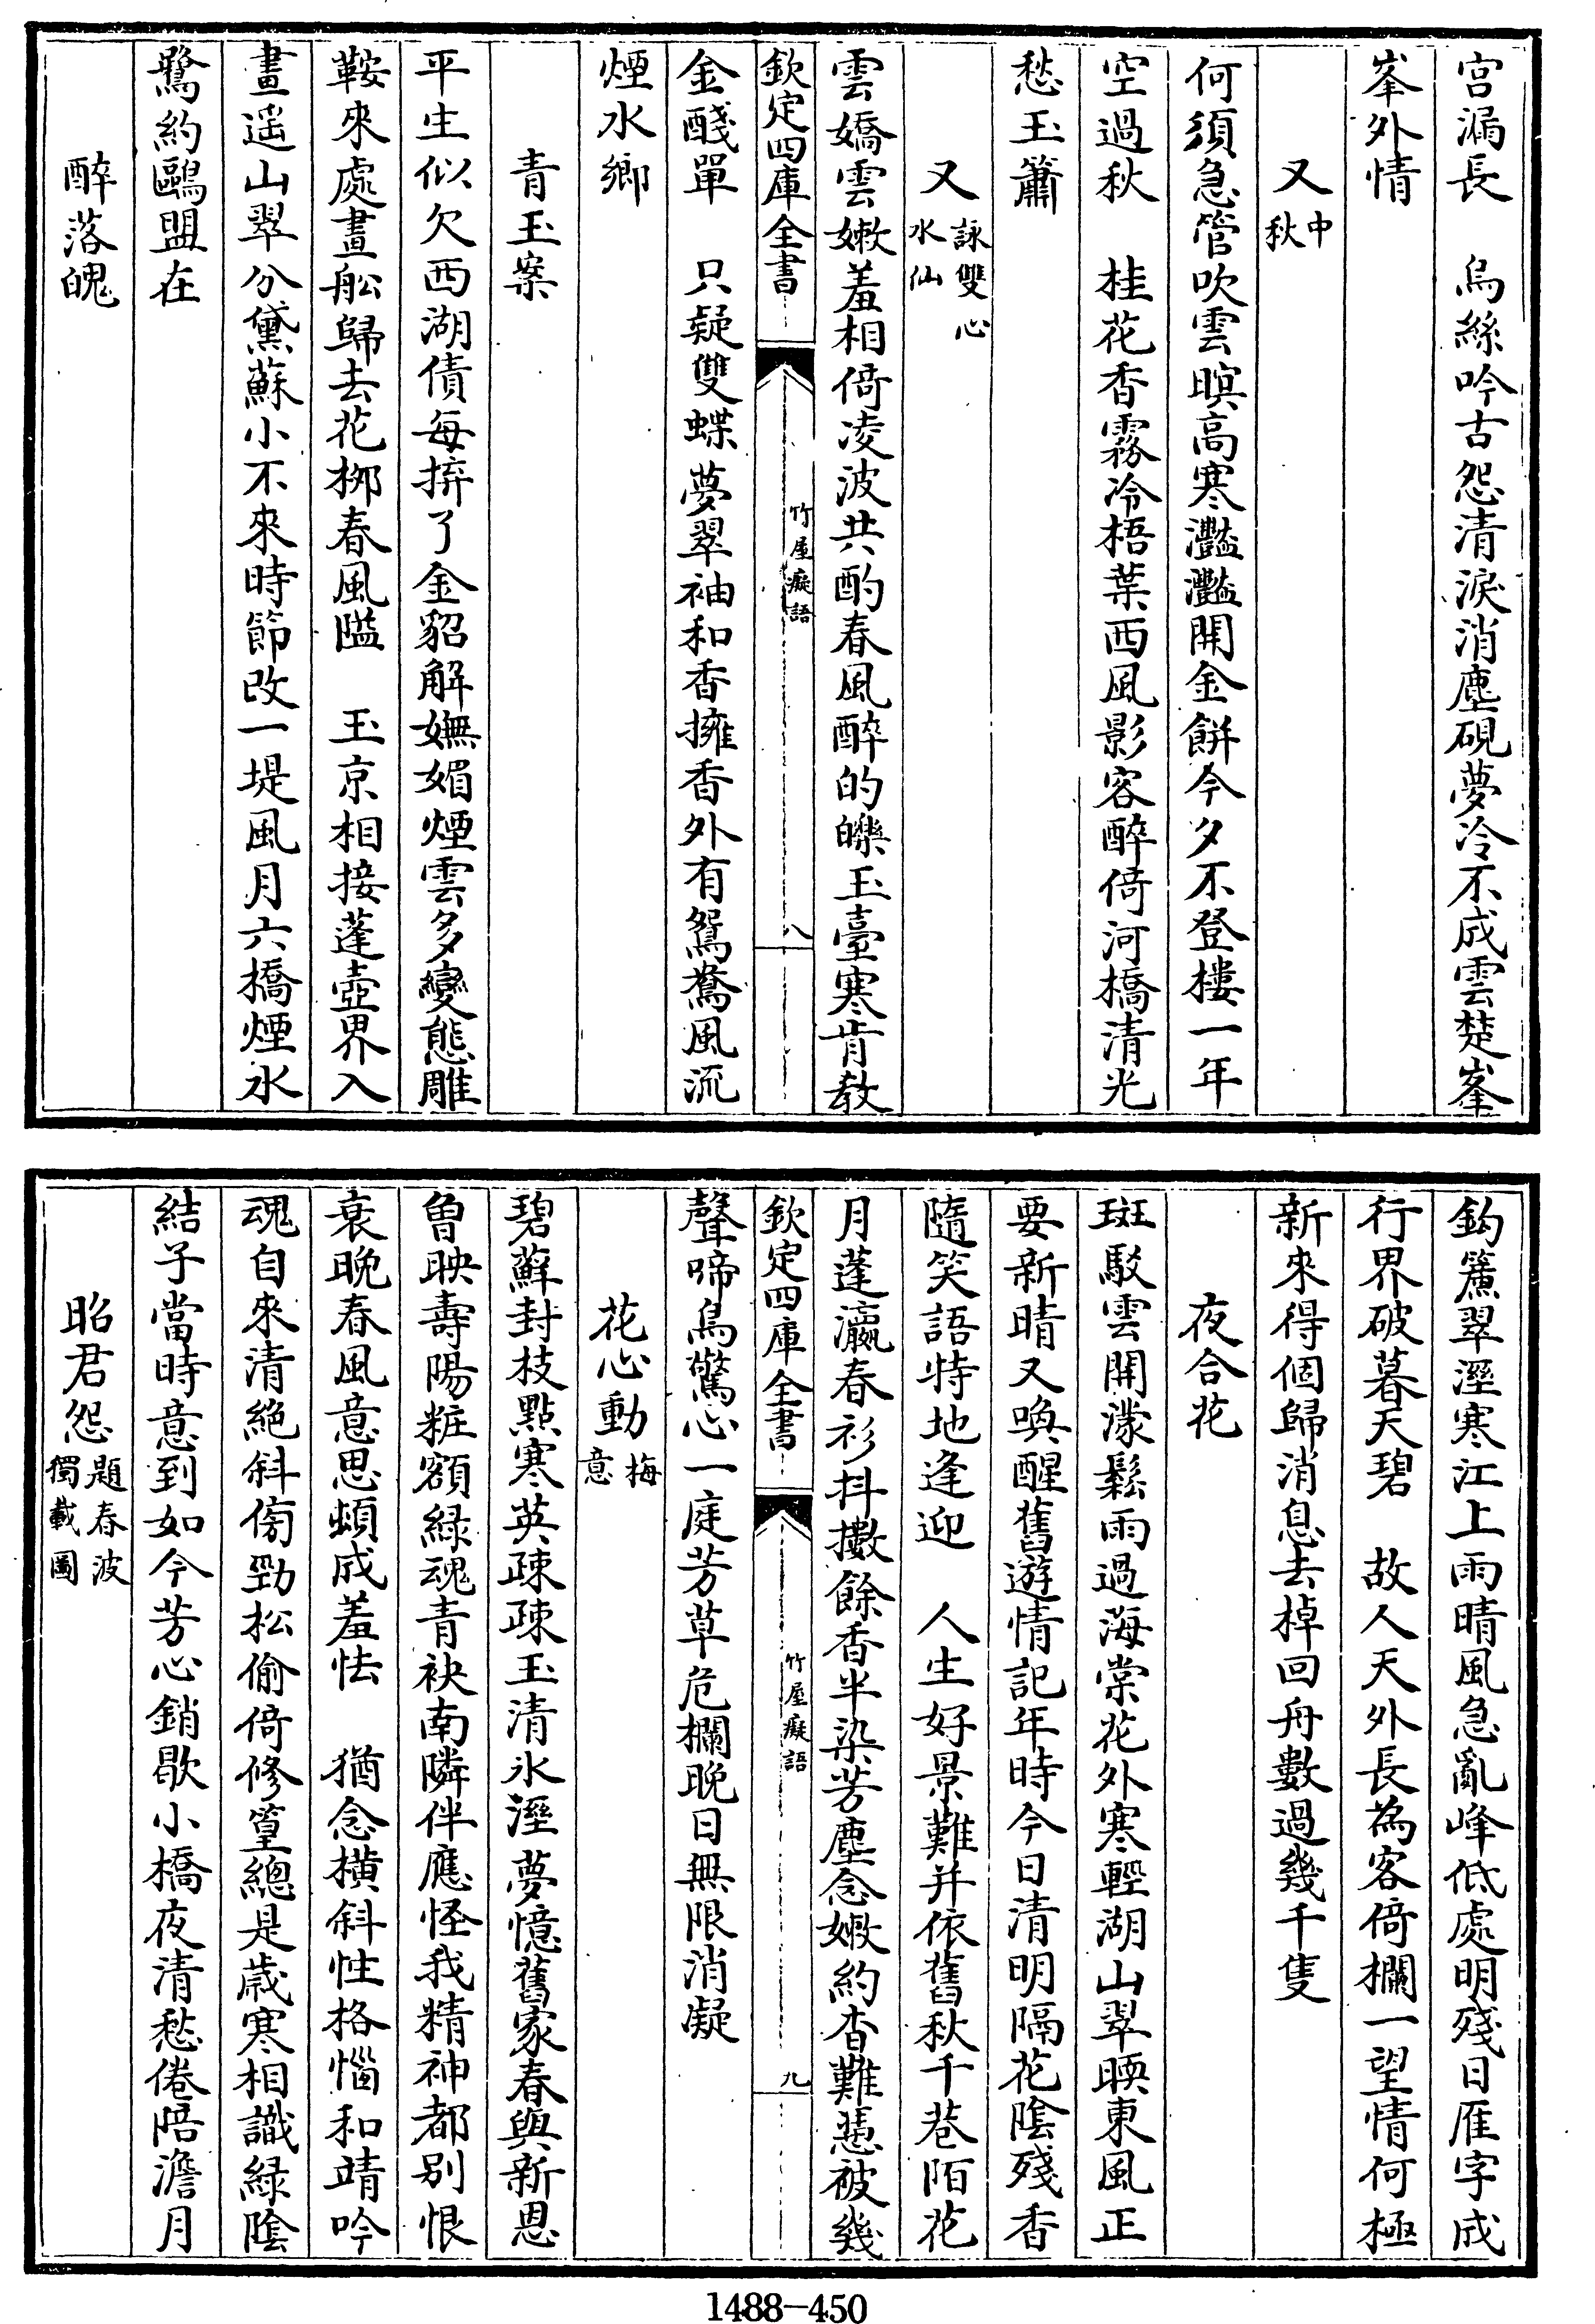 宫漏長　烏絲吟古怨清淚消塵硯夢冷不成雲楚峯
峯外情
又中秋
何須急管吹雲暝高寒灩灩開金餅今夕不登樓一年
空過秋　桂花香霧冷梧葉西風影客醉倚河橋清光
愁玉簫
又詠雙心水仙
雲嬌雲嫩羞相倚凌波共酌春風醉的皪玉臺寒肯教
欽定四庫全書
竹屋癡語
八
金醆單　只疑雙蝶夢翠袖和香擁香外有鴛鴦風流
煙水鄉
青玉案
平生似欠西湖債每拚了金貂解嫵媚煙雲多變態雕
鞍來處畫舩歸去花柳春風隘　玉京相接蓬壺界入
畫遥山翠分黛蘇小不來時節改一堤風月六橋煙水
鷺約鷗盟在
醉落魄
鈎簾翠溼寒江上雨晴風急亂峰低處明殘日雁字成
行界破暮天碧　故人天外長為客倚欄一望情何極
新來得個歸消息去棹回舟數過幾千隻
夜合花
斑駁雲開濛鬆雨過海棠花外寒輕湖山翠暎東風正
要新晴又喚醒舊遊情記年時今日清明隔花陰殘香
隨笑語特地逢迎　人生好景難并依舊秋千巷陌花
月蓬瀛春衫抖擻餘香半染芳塵念嫩約杳難慿被幾
欽定四庫全書
竹屋癡語
九
聲啼鳥驚心一庭芳草危欄晚日無限消凝
花心動梅意
碧蘚封枝點寒英疎疎玉清氷溼夢憶舊家春與新恩
曾映壽陽粧額綠魂青袂南隣伴應怪我精神都别恨
衰晚春風意思頓成羞怯　猶念横斜性格惱和靖吟
魂自來清絶斜傍勁松偷倚修篁總是歲寒相識綠陰
結子當時意到如今芳心銷歇小橋夜清愁倦陪澹月
昭君怨題春波獨載圖
1488—450